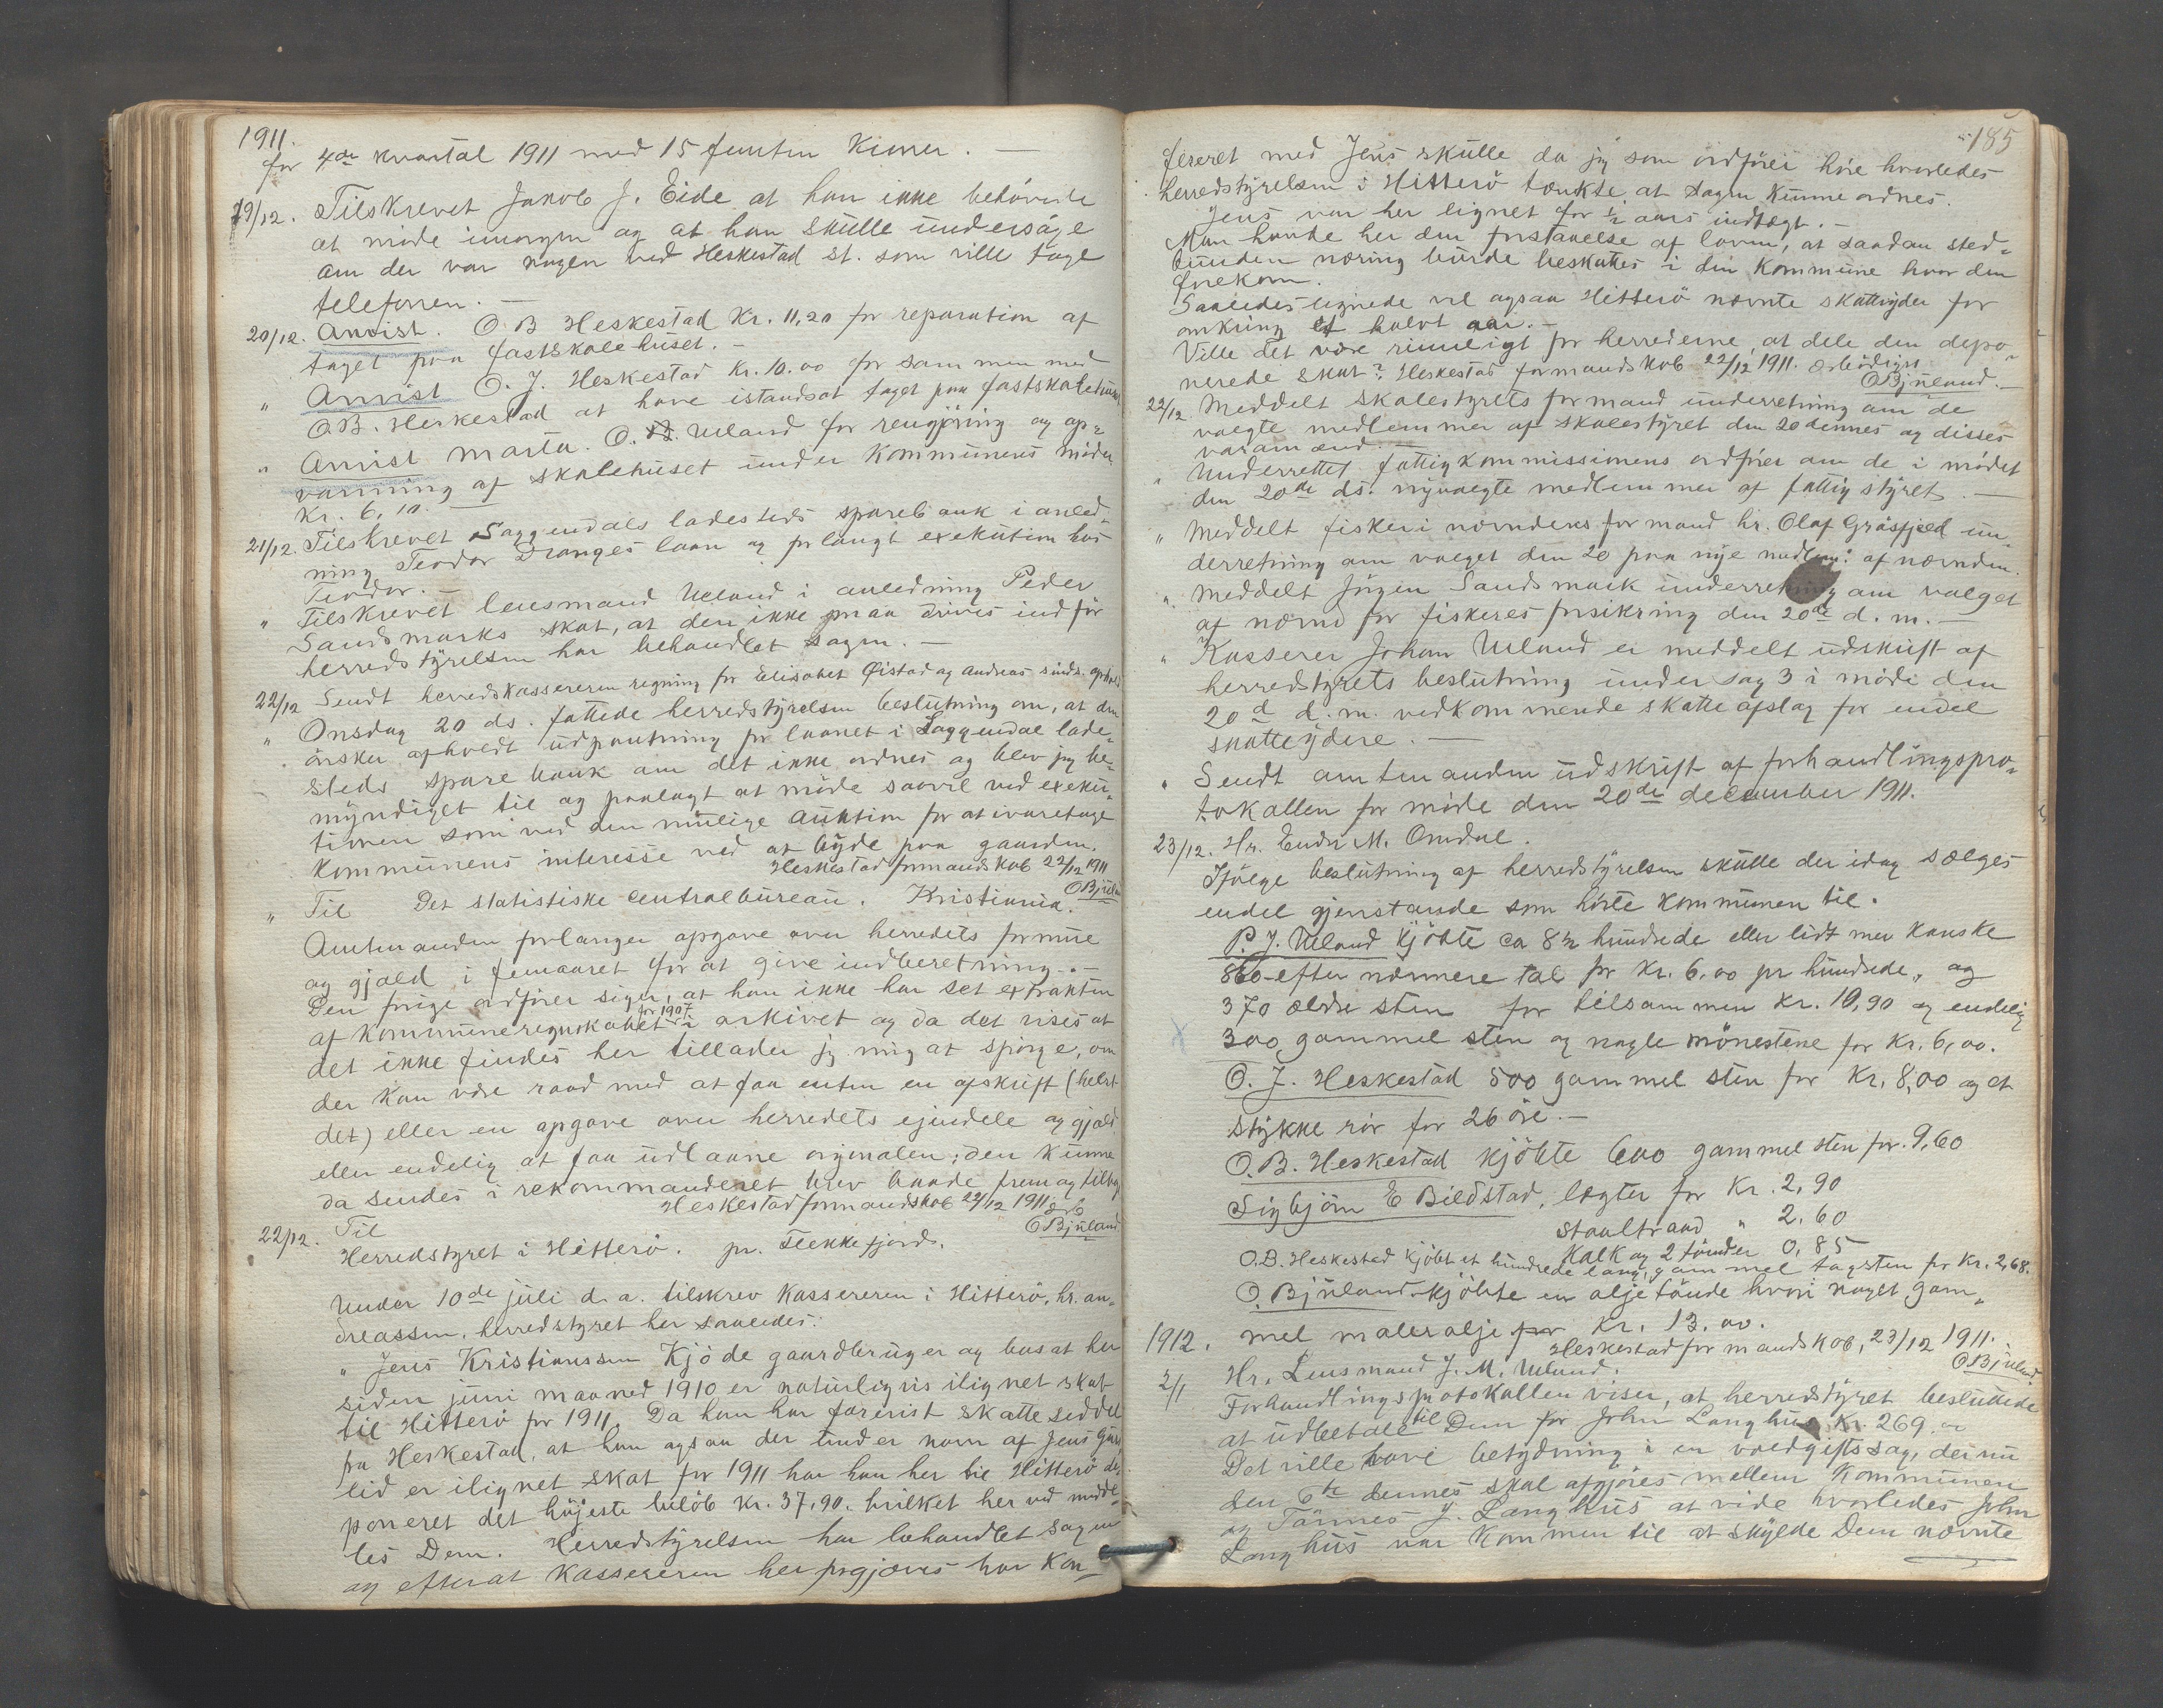 1911.
for 4de kvartal 1911 med 15 femten Kroner. —
19/12. Tilskrevet Jakob J. Eide at han ikke behövede
at möde imorgen og at han skulle undersöge
om der var nogen ved Heskestad st. som ville tage
telefonen. —
20/12. Anvist. O. B Heskestad Kr. 11,20 for reparation af
taget paa fastskolehuset. —
" Anvist O. J. Heskestad Kr. 10.00 for sammen med
O.B. Heskestad at have istandsat taget paa fastskolehuset
" Anvist Marta. O. Ueland for rengjöring og op-
varming af skolehuset under Kommunens möder
Kr. 6,10. —
21/12. Tilskrevet Soggendals ladesteds sparebank i anled-
ning Teodor Dranges laan og forlangt exekution hos
Teodor. —
" Tilskrevet lensmand Ueland i anledning Peder
Sandsmarks skat, at den ikke maa drives ind för
herredstyrelsen har behandlet sagen. —
22/12 Sendt herredskassereren regning for Elisabet Øistad og Andreas sinds.
" Onsdag 20 ds. fattede herredstyrelsen beslutning om, at den
önsker afholdt udpantning for laanet i Soggendal lade-
steds sparebank om det ikke ordnes og blev jeg be-
myndiget til og paalagt at möde saavel ved exeku-
tionen som ved den mulige auktion for at ivaretage
Kommunens interesse ved at byde paa gaarden.
Heskestad formandskab 22/12 1911
O Bjuland
" Til Det statistiske centralbureau. Kristiania.
Amtmanden forlanger opgave over herredets formue
og gjæld i femaaret for at give indberetning. —
Den forige ordförer siger, at han ikke har set extrakten
af Kommuneregnskabet for 1907 i arkivet og da det vises at
det ikke findes her tillader jeg mig at spörge, om
der kan være raad med at faa enten en afskrift (helst
det) eller en opgave over herredets ejendele og gjæld
eller endelig at faa udlaane orginalen; den kunne
da sendes i rekommanderet brev baade frem og tilbage
Heskestad formandskab 22/12 1911
O Bjuland
22/12. Til
Herredstyret i Hitterö. pr. Flekkefjord.
Under 10de juli d.a. tilskrev Kassereren i Hitterö, hr. An-
dreassen, herredstyret her saaledes:
" Jens Kristianssen Kjöde gaardbruger og bosat her
siden juni maaned 1910 er naturligvis ilignet skat
til Hitterö for 1911. Da han har forevist skatteseddel
fra Heskestad, at han ogsaa der under navn af Jens
lid er ilignet skat for 1911 har han her til Hitterö de-
poneret det höjeste belöb Kr. 37,90. hvilket her ved medde-
les Dem. Herredstyrelsen har behandlet sagen
og efterat Kassereren her forgjæves har Kon-
185
fereret med Jens skulle da jeg som ordförer höre hvorledes
herredstyrelsen i Hitterö tænkte at sagen kunne ordnes.
Jens var her lignet for 1/2 aars indtægt. —
Man havde her den forstaaelse af loven, at saadan sted-
bunden næring burde beskattes i den Kommune hvor den
forekom.
Saaledes lignede vel ogsaa Hitterö nævnte skatteyder for
omkring et halvt aar. —
Ville det være rimeligt for herrederne, at dele den depo-
nerede skat? Heskestad formandskab 22/12 1911. Ærbödigst
O Bjuland. —
22/12. Meddelt skolestyrets formand underretning om de
valgte medlemmer af skolestyret den 20 dennes og disses
varamænd. —
" Underrettet fattigkommissionens ordförer om de i mödet
den 20de ds. nyvalgte medlemmer af fattigstyret. —
" Meddelt fiskerinævndens formand hr. Olaf Gräsfjeld un-
derretning om valget den 20 paa nye medlem: af nævnden.
" Meddelt Jörgen Sandsmark underretning om valget
af nævnd for fiskeres forsikring den 20de d. m. —
" Kasserer Johan Ueland er meddelt udskrift af
herredstyrets beslutning under sag 3 i möde den
20de d. m. vedkommende skatteafslag for endel
skatteydere. —
" Sendt amtmanden udskrift af forhandlingspro-
tokollen for möde den 20de december 1911.
23/12. Hr. Endre M. Omdal.
Ifölge beslutning af herredstyrelsen skulle der idag sælges
endel gjenstande som hörte Kommunen til.
P. J. Ueland kjöbte ca 8 1/2 hundrede eller lidt mer kanske
860 efter nærmere tal for Kr. 6,00 pr hundrede, og
370 ældre sten for tilsammen Kr. 10,90 og endelig
300 gammel sten og nogle mönestene for Kr. 6,00.
O. J. Heskestad 500 gammel sten for Kr. 8,00 og et
stykke rör for 26 öre. —
O. B. Heskestad kjöbte 600 gammel sten for 9,60
Sigbjörn E Bildstad, lægter for Kr. 2,90
staaltraad " 2.60
Kalk og 2 tönder 0,85
O.B. Heskestad kjöbt et hundrede lang, gammel tagsten for Kr. 2,68.
O. Bjuland kjöbte en oljetönde hvori noget gam-
mel maleralje for Kr. 13.00.
Heskestad formandskab, 23/12 1911.
O Bjuland
1912.
2/1 Hr. Lensmand J. M. Ueland.
Forhandlingsprotokollen viser, at herredstyret besluttede
at udbetale til Dem for John Langhus Kr. 269.
Det ville have betydning i en voldgiftssag, der nu
den 6te dennes skal afgjöres mellem Kommunen
og Tönnes J. Langhus at vide hvorledes John
Langhus var kommen til at skylde Dem nævnte